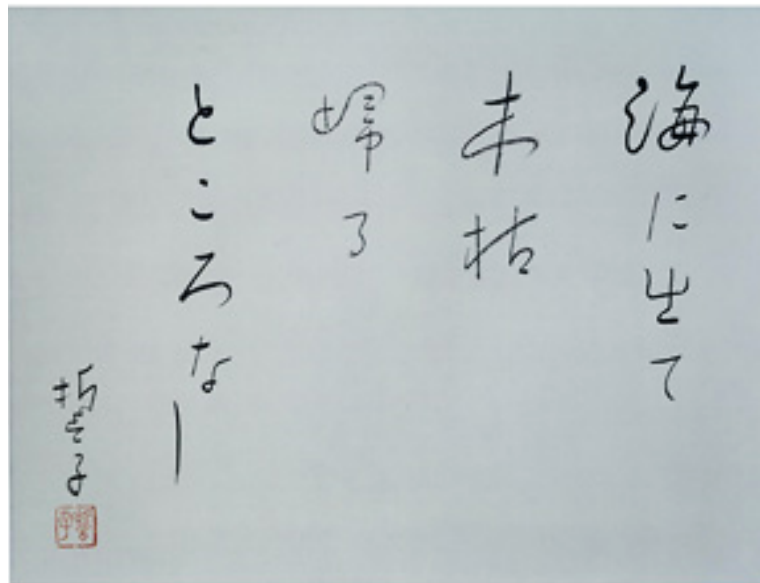 海に出て
木枯
帰る
ところなし
誓子